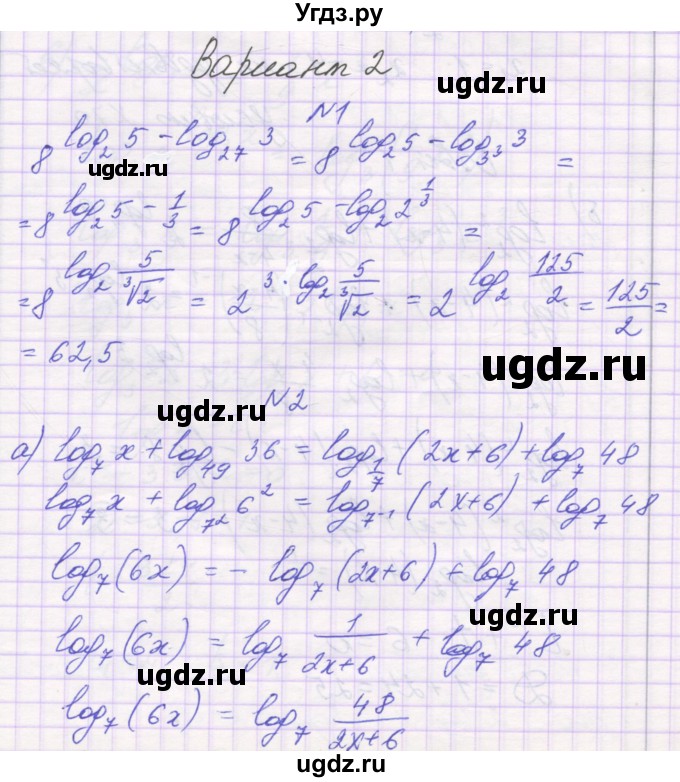 Угдз.ру
Вариант 2
ugdz.ru
№1
8^(log₂ 5 - log₂₇ 3) = 8^(log₂ 5 - log_(3³) 3) =
ugdz.ru
= 8^(log₂ 5 - 1/3) = 8^(log₂ 5 - log₂ 2^(1/3)) =
ugdz.ru
= 8^(log₂ 5/∛2) = 2^(3 · log₂ 5/∛2) = 2^(log₂ 125/2) = 125/2 =
ugdz.ru
= 62,5
ugdz.ru
№2
ugdz.ru
а) log₇ x + log₄₉ 36 = log_(1/7) (2x+6) + log₇ 48
log₇ x + log_(7²) 6² = log_(7⁻¹) (2x+6) + log₇ 48
log₇ (6x) = - log₇ (2x+6) + log₇ 48
ugdz.ru
log₇ (6x) = log₇ 1/(2x+6) + log₇ 48
ugdz.ru
log₇ (6x) = log₇ 48/(2x+6)
ugdz.ru